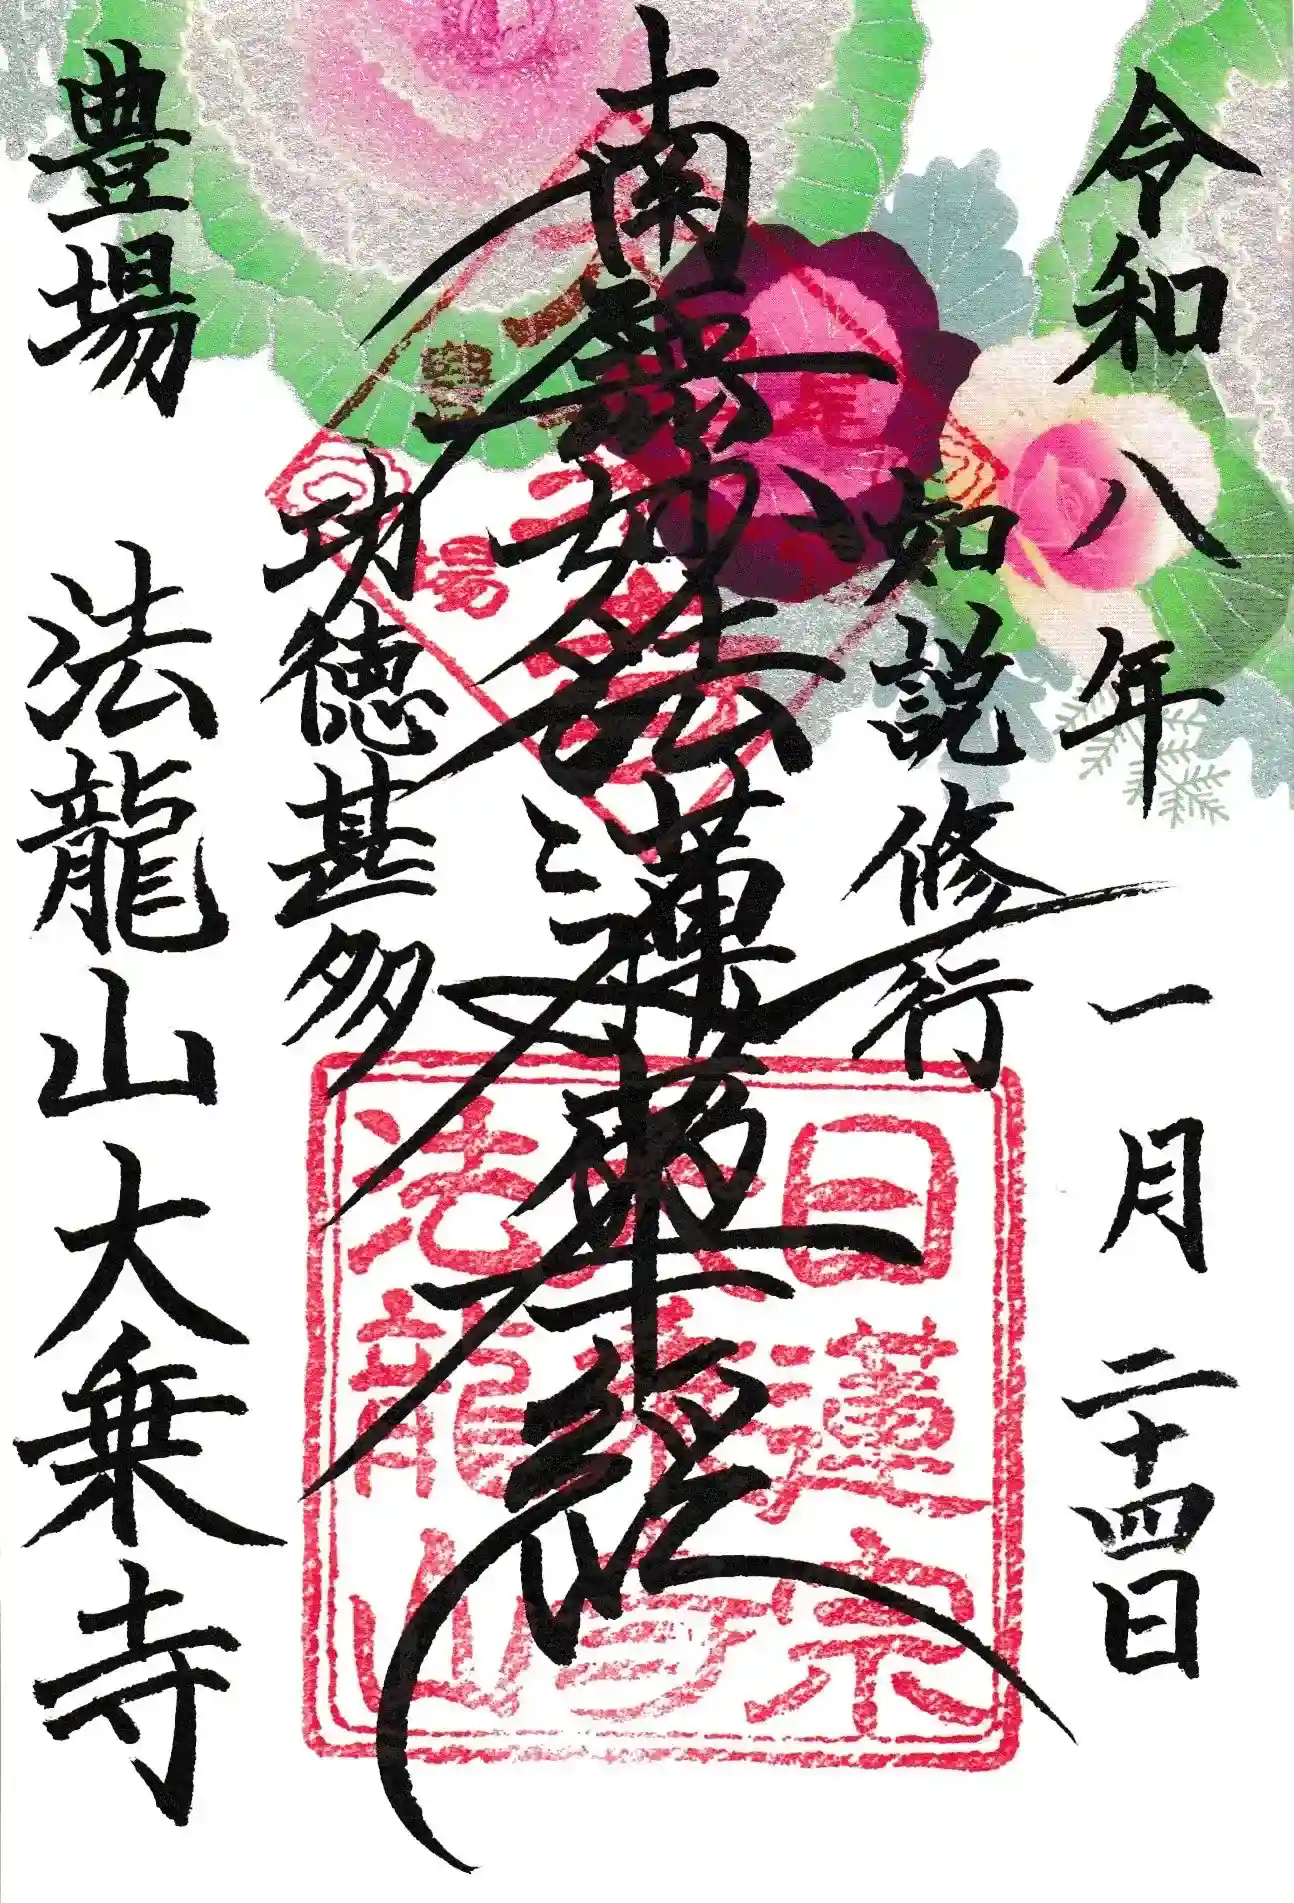 令和八年一月二十四日
如説修行
南無妙法蓮華経
功徳甚多
豊場 法龍山 大乗寺
日蓮宗
大乗寺
法龍山
豊場